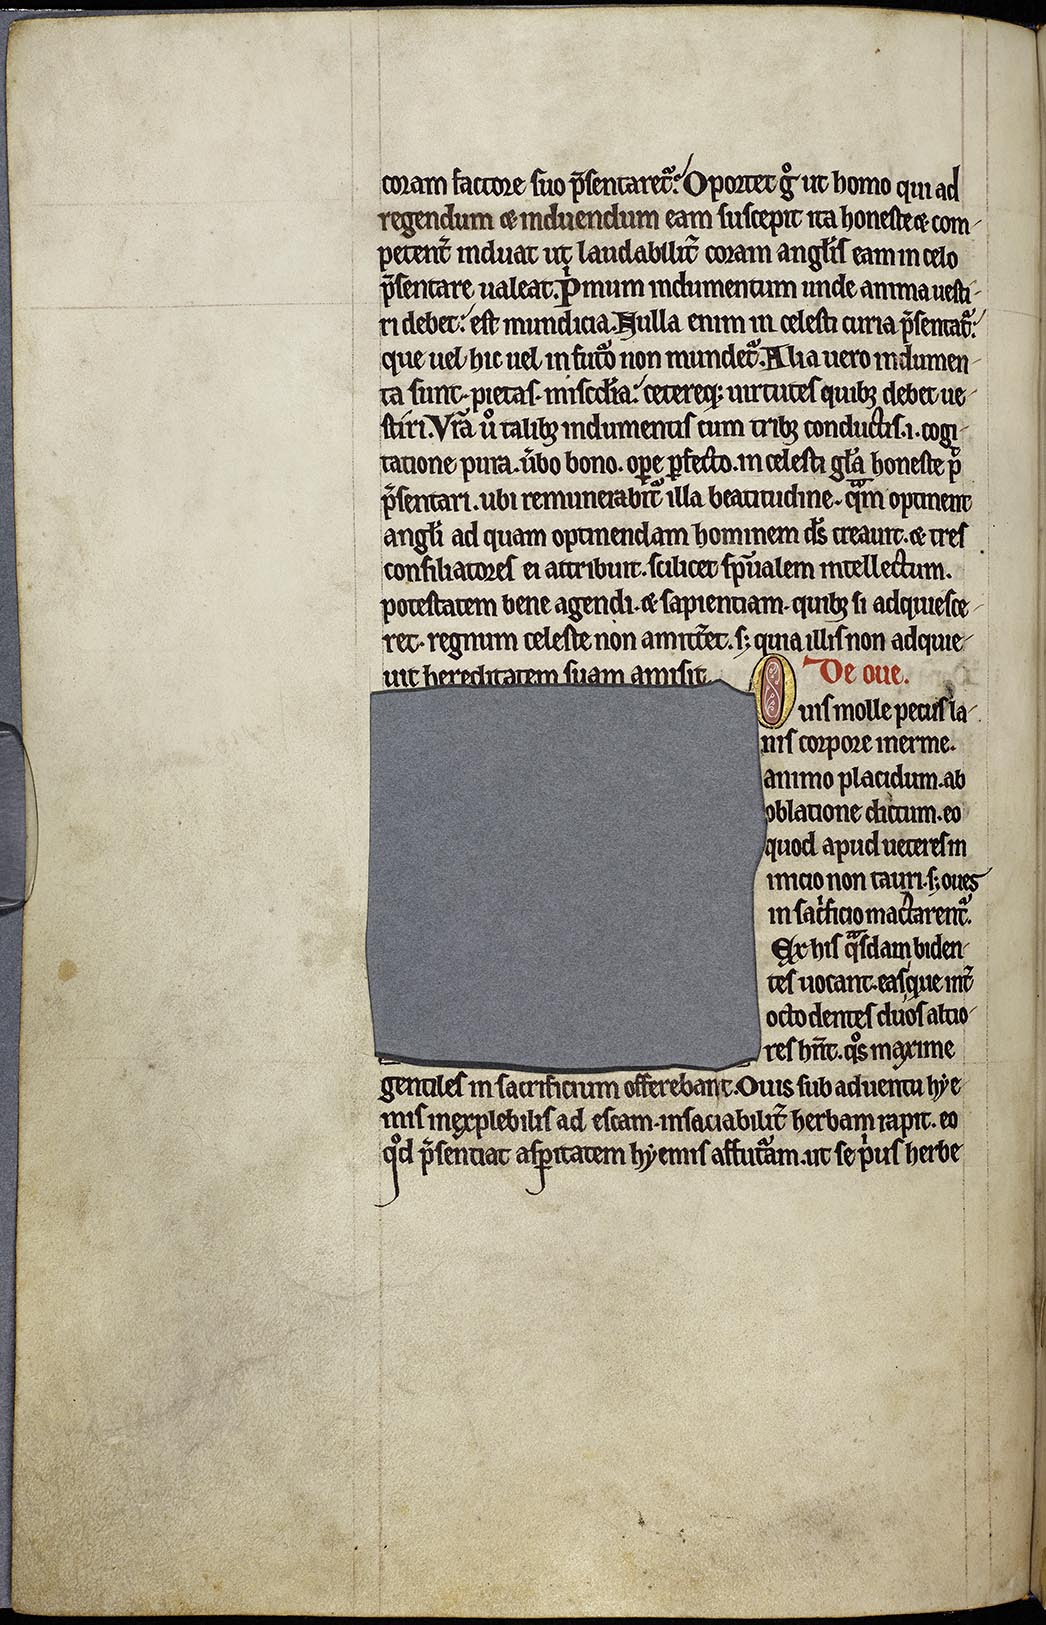 coram factore suo p̄sentaret᷑. Oportet gͦ ut homo qui ad
regendum & induendum eam suscepit ita honeste & com-
petent̄ induat ut laudabilit̄ coram angl̄is eam in celo
p̄sentare ualeat. Pͥmum indumentum unde anima uesti-
ri debet: est mundicia. Nulla enim in celesti curia p̄sentat᷑:
que uel hic uel in fut᷑o non mundet᷑. Alia uero indumen-
ta sunt. pietas. misc̄dia. cetereq; uirtutes quibꝫ debet ue-
stiri. Vr̄a uͦ talibꝫ indumentis cum tribꝫ conductis .i. cogi-
tatione pura. ūbo bono. oꝑe ꝑfecto. in celesti gl̄a honeste pͦt
p̄sentari. ubi remunerabit᷑ illa beatitudine. qͣm optinent
angl̄i ad quam optinendam hominem ds̄ creauit. & tres
consiliatores ei attribuit. scilicet sp̄ualem intellectum.
potestatem bene agendi. & sapientiam. quibꝫ si adquiesce-
ret. regnum celeste non amitt̄et. s; quia illis non adquie-
uit hereditatem suam amisit.
De oue.
Ouis molle pecus la-
nis corpore inerme.
animo placidum. ab
oblatione dictum. eo
quod apud ueteres in
inicio non tauri. s; oues
in sac̍ficio mactarent᷑.
Ex his qͣsdam biden-
tes uocant. easque int̄
octo dentes duos altio-
res hn̄t. qͦs maxime
gentiles in sacrificium offerebant. Ouis sub aduentu hye-
mis inexplebilis ad escam. insaciabilit̄ herbam rapit. eo
qͦd p̄sentiat asꝑitatem hyemis affut᷑am. ut se pͥus herbe